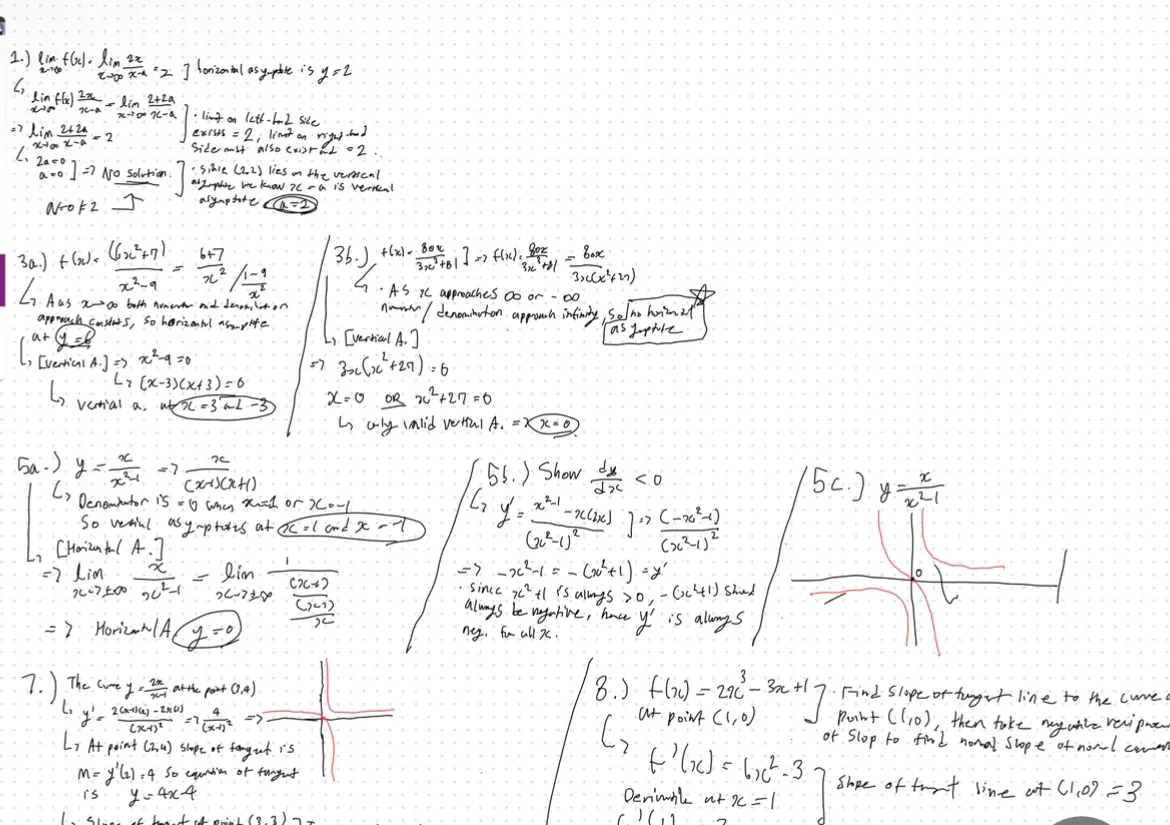 1.) lim f(x) = lim 2x/x-a = 2 ] horizontal asymptote is y = 2
x→∞ x→∞
lim f(x) 2x/x-a = lim 2+2a/x-a
x→∞ x→∞
=> lim 2+2a/x-a = 2
x→∞
2a=0
a=0 ] => No solution.
· limit on left-hand side
exists = 2, limit on right hand
side must also exist and = 2.
(2,2) lies on the vertical
asymptote we know x = a is vertical
asymptote (a=2)
3a.) f(x) = (6x²+7)/x²-9 = 6+7/x² / 1-9/x²
As x→∞ both and
approach constants, so horizontal asymptote
at y = 6
[Vertical A.] => x²-9=0
(x-3)(x+3)=0
vertical a. at x = 3 and -3
3b.) f(x) = 80x/3x³+81 ] => f(x) = 80x/3x³+81 = 80x/3x(x²+27)
· As x approaches ∞ or -∞
/ approach infinity, so no horizontal
asymptote
[Vertical A.]
=> 3x(x²+27) = 0
x=0 OR x²+27=0
only valid vertical A. => x=0
5a.) y = x/x²-1 => x/(x-1)(x+1)
Denominator is =0 when x=1 or x=-1
So vertical asymptotes at x=1 and x=-1
[Horizontal A.]
=> lim x/x²-1 = lim 1
x→±∞ x→±∞
=> Horizontal A. y=0
5b.) Show dy/dx < 0
y' = x²-1 - x(2x)/(x²-1)² ] => (-x²-1)/(x²-1)²
=> -x²-1 = -(x²+1) = y'
· since x²+1 is always >0, -(x²+1) should
always be negative, hence y' is always
neg. for all x.
5c.) y = x/x²-1
0
7.) The curve y = 2x/x-1 at the point (2,4)
y' = => 4/(x-1)² =>
At point (2,4) slope of tangent is
m = y'(2) = 4 so equation of tangent
is y = 4x-4
Slope of tangent at point (3,3)
8.) f(x) = 2x³ - 3x + 1
at point (1,0)
· Find slope of tangent line to the curve
point (1,0), then take negative
of slop to find normal slope of normal
f'(x) = 6x² - 3
Derivative at x = 1
slope of tangent line at (1,0) = 3